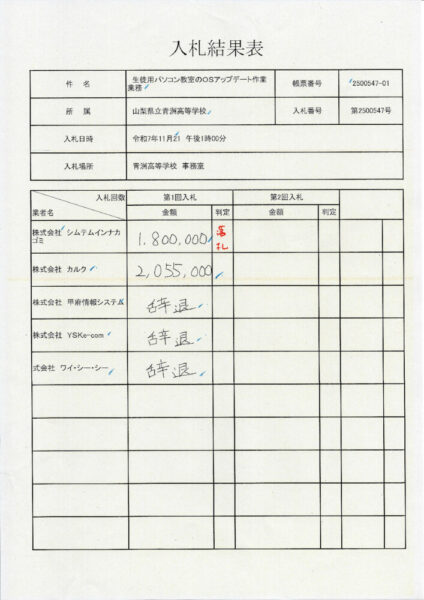 入札結果表
件 名 生徒用パソコン教室のOSアップデート作業 帳票番号 2500547-01
業務
所 属 山梨県立青洲高等学校 入札番号 第2500547号
入札日時 令和7年11月21 午後1時00分
入札場所 青洲高等学校 事務室
入札回数 第1回入札 第2回入札
業者名 金額 判定 金額 判定
株式会社 シムテムインナカ 1,800,000 落札
ゴミ
株式会社 カルク 2,055,000
株式会社 甲府情報システム 辞退
株式会社 YSKe-com 辞退
式会社 ワイ・シー・シー 辞退